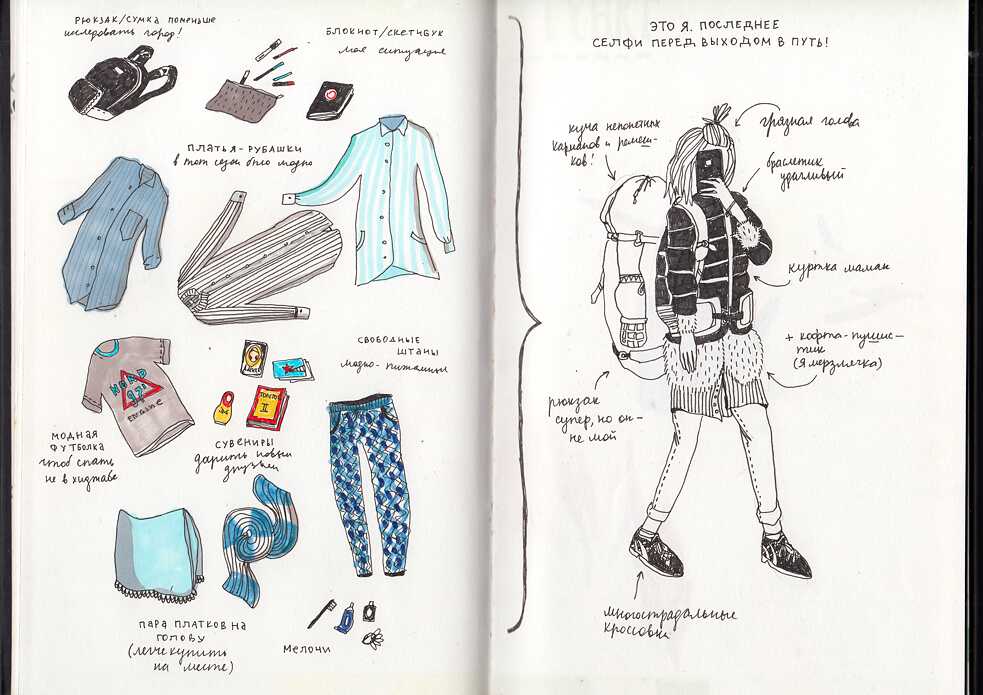 РЮКЗАК/СУМКА ПОМЕНЬШЕ
исследовать город!
БЛОКНОТ/СКЕТЧБУК
моя ситуация
ПЛАТЬЯ-РУБАШКИ
в тот сезон было модно
МОДНАЯ
ФУТБОЛКА
чтоб спать
не в хиджабе
EXTREME
ТОЛСТОЙ
II
СУВЕНИРЫ
дарить новым
друзьям
СВОБОДНЫЕ
ШТАНЫ
модно-пижамицы
ПАРА ПЛАТКОВ НА
ГОЛОВУ
(легче купить
на месте)
МЕЛОЧИ
ЭТО Я. ПОСЛЕДНЕЕ
СЕЛФИ ПЕРЕД ВЫХОДОМ В ПУТЬ!
куча непонятных
карманов и ремеш-
ков!
грязная голова
браслетик
удачливый
куртка маман
+ кофта-пушис-
тик
(Я мерзлячка)
рюкзак
супер, но он-
не мой
многострадальные
кроссовки